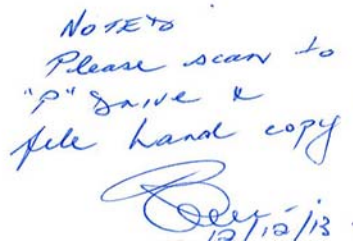 NOTED
Please scan to
"P" Drive &
file hard copy
12/12/13